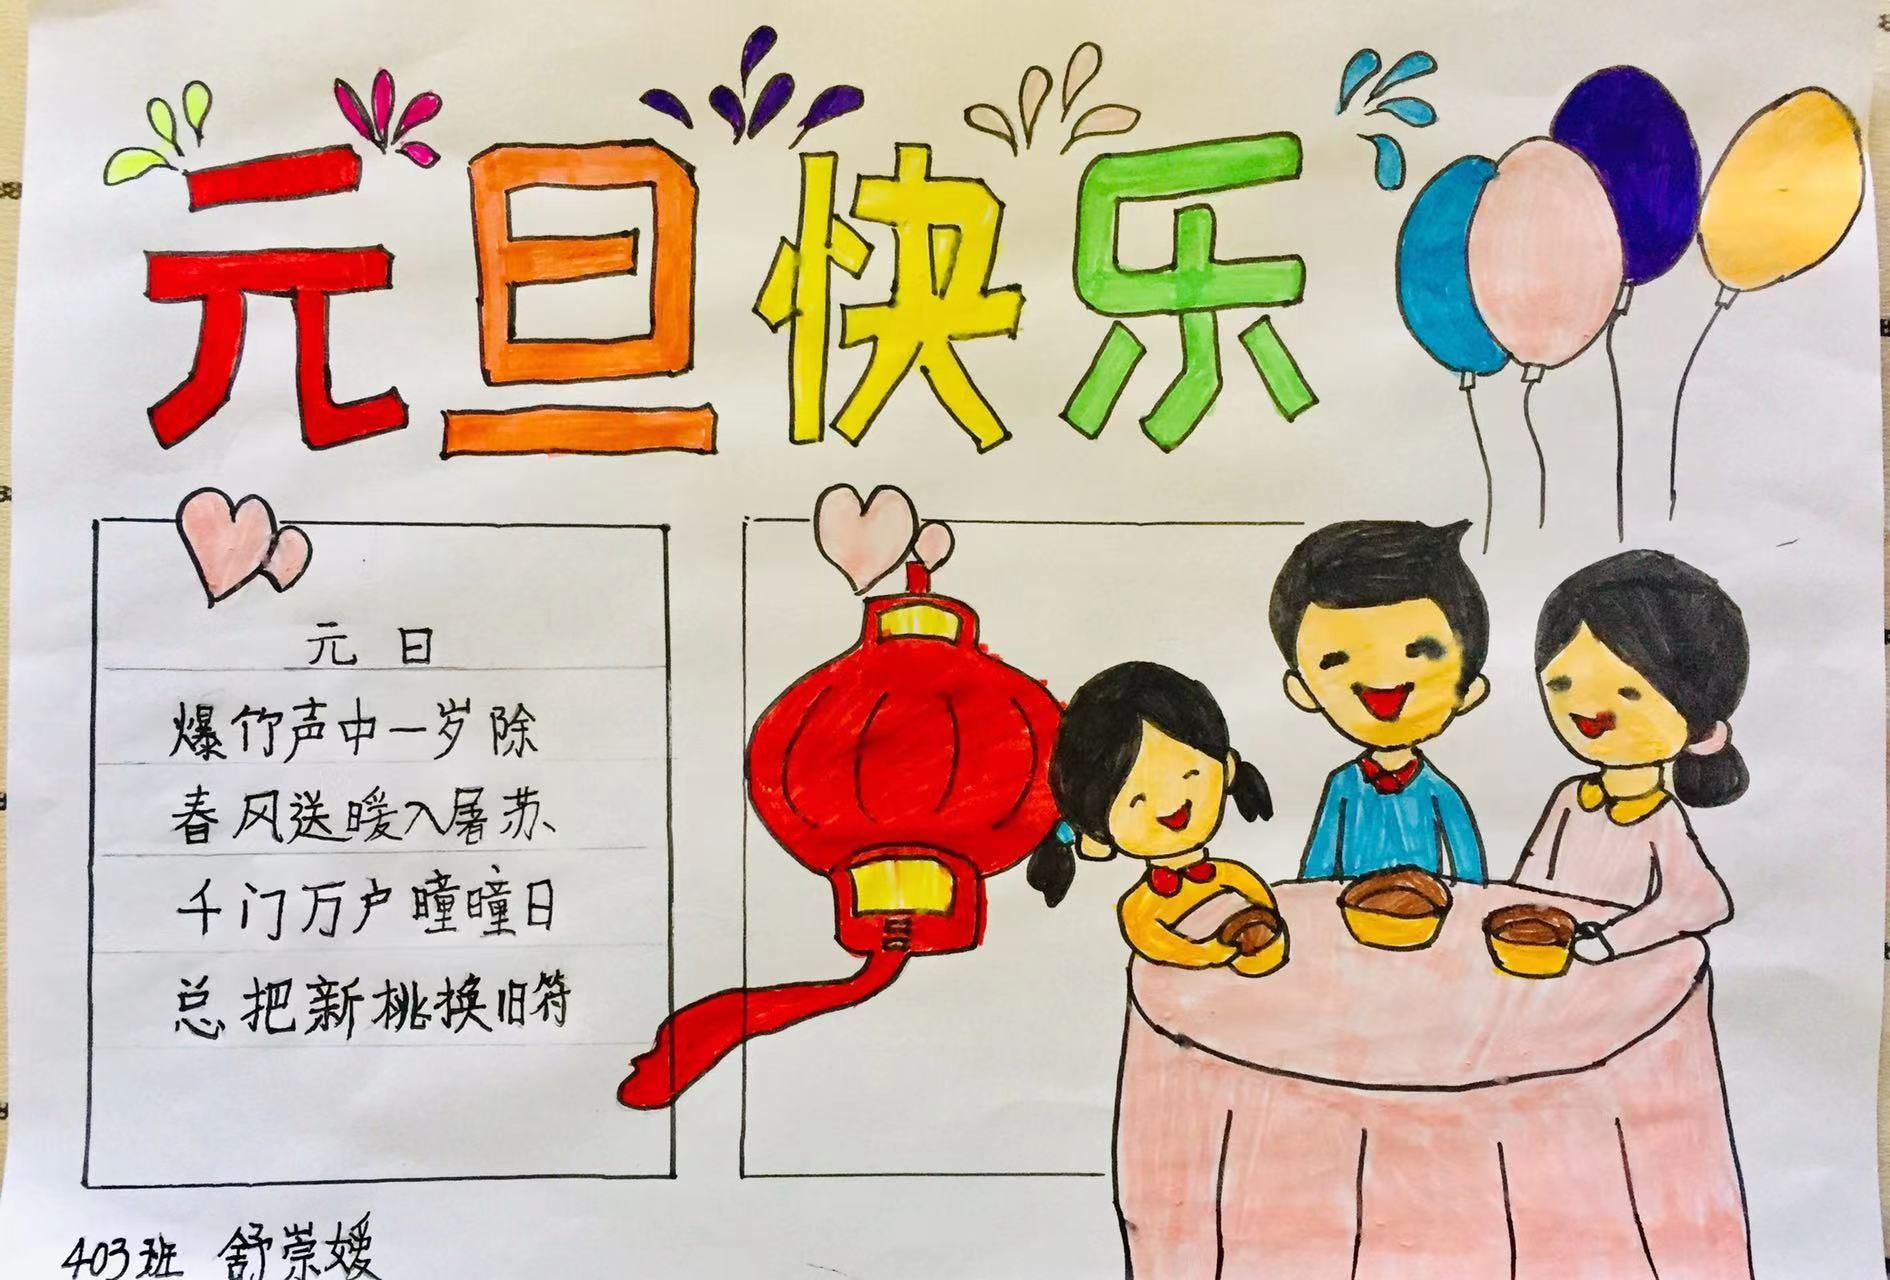 元旦快乐
元日
爆竹声中一岁除
春风送暖入屠苏
千门万户曈曈日
总把新桃换旧符
403班 舒崇媛